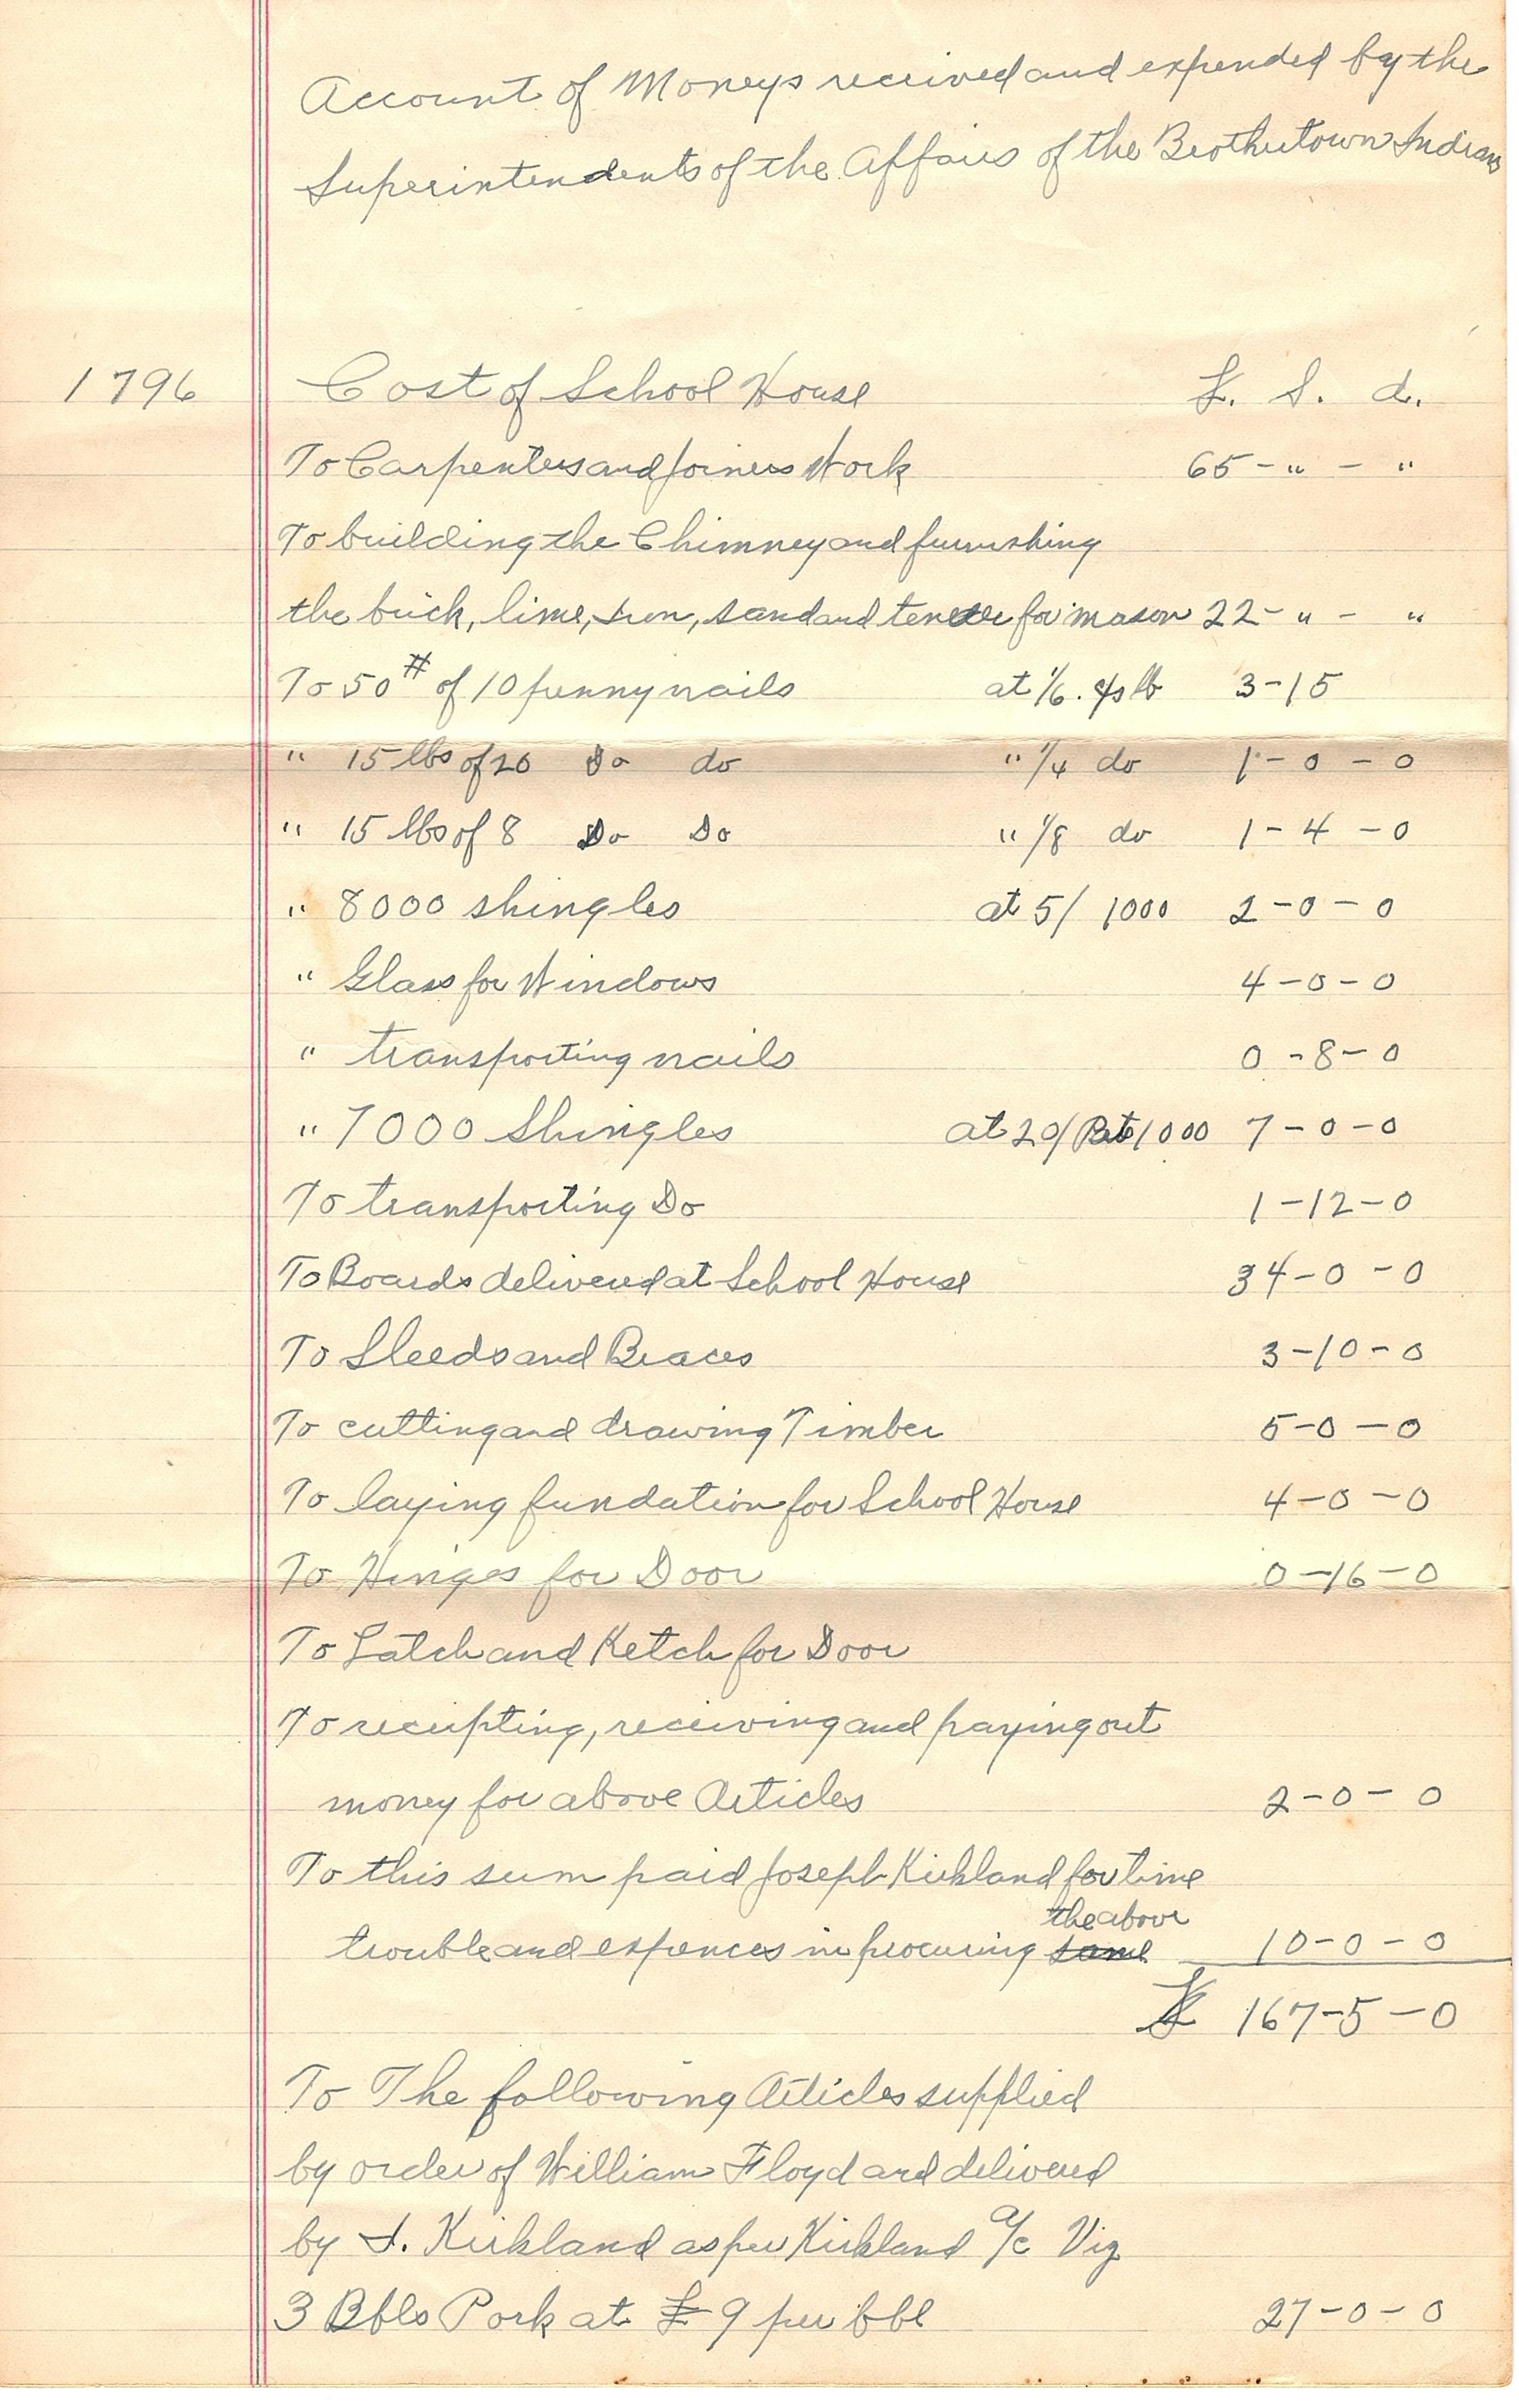 Account of Moneys received and expended by the
Superintendents of the Affairs of the Brothertown Indians
1796 Cost of School House £. S. d.
To Carpenters and Joiners Work 65 - " - "
To building the Chimney and furnishing
the brick, lime, iron, sand and tender for mason 22 - " - "
To 50 # of 10 penny nails at 1/6. lb 3 - 15
" 15 lbs of 20 Do do " 1/4 do 1 - 0 - 0
" 15 lbs of 8 Do Do " 1/8 do 1 - 4 - 0
" 8000 shingles at 5/ 1000 2 - 0 - 0
" Glass for Windows 4 - 0 - 0
" transporting nails 0 - 8 - 0
" 7000 Shingles at 20/ 1000 7 - 0 - 0
To transporting Do 1 - 12 - 0
To Boards delivered at School House 34 - 0 - 0
To Sleeds and Braces 3 - 10 - 0
To cutting and drawing Timber 5 - 0 - 0
To laying fundation for School House 4 - 0 - 0
To Hinges for Door 0 - 16 - 0
To Latch and Ketch for Door
To receipting, receiving and paying out
money for above Articles 2 - 0 - 0
To this sum paid Joseph Kirkland for time
the above
trouble and expences in procuring same 10 - 0 - 0
£ 167 - 5 - 0
To The following Articles supplied
by order of William Floyd and delivered
by J. Kirkland as per Kirkland a/c Viz
3 Bbls Pork at £ 9 per bbl 27 - 0 - 0